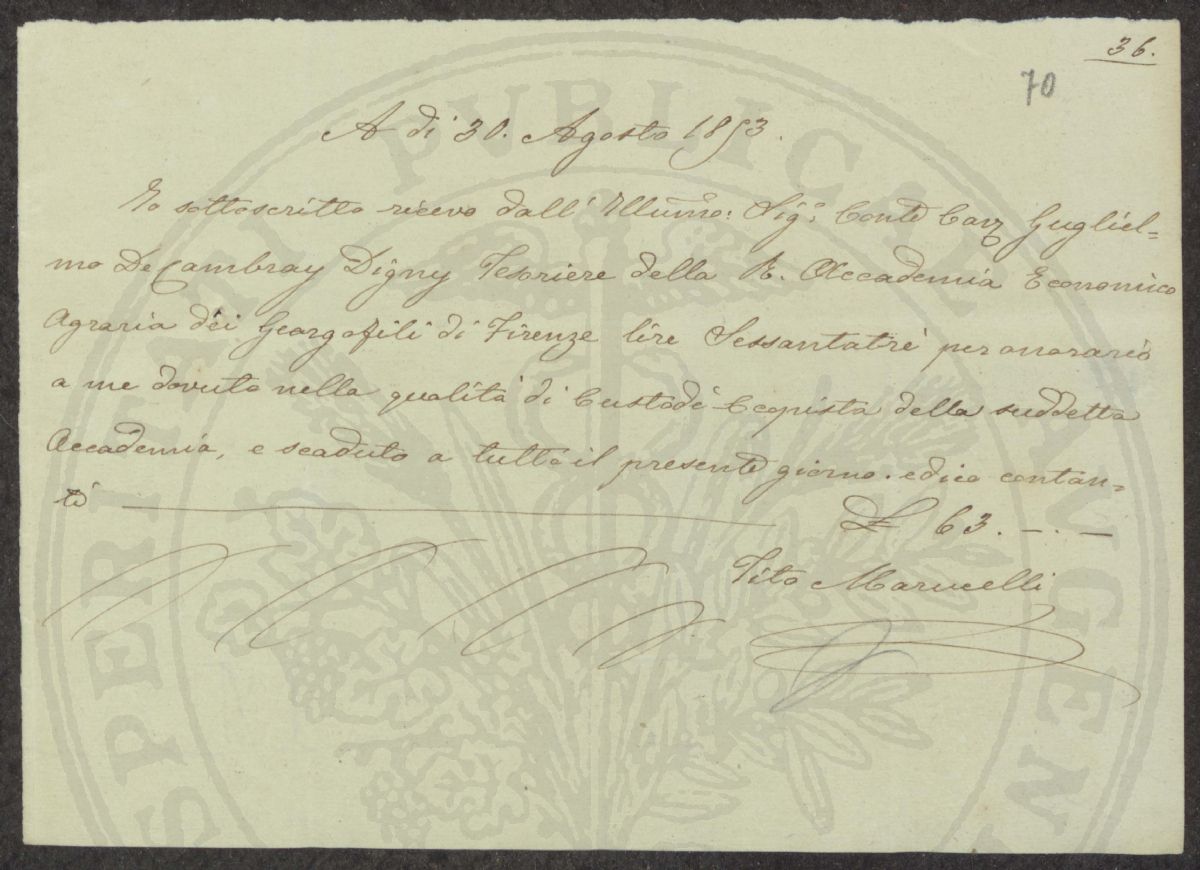 36.
70
A dì 30. Agosto 1853.
Io sottoscritto ricevo dall' Illumo: Sigr: Conte Cavr Gugliel=
mo De Cambray Digny Tesoriere della R. Accademia Economico
Agraria dei Georgofili di Firenze lire Sessantatrè per onorario
a me dovuto nella qualità di Custode Copista della suddetta
Accademia, e scaduto a tutto il presente giorno. e dico contan=
ti
£ 63. -.-
Tito Marucelli
PROSPERITATI PVBLICAE AVGENDAE